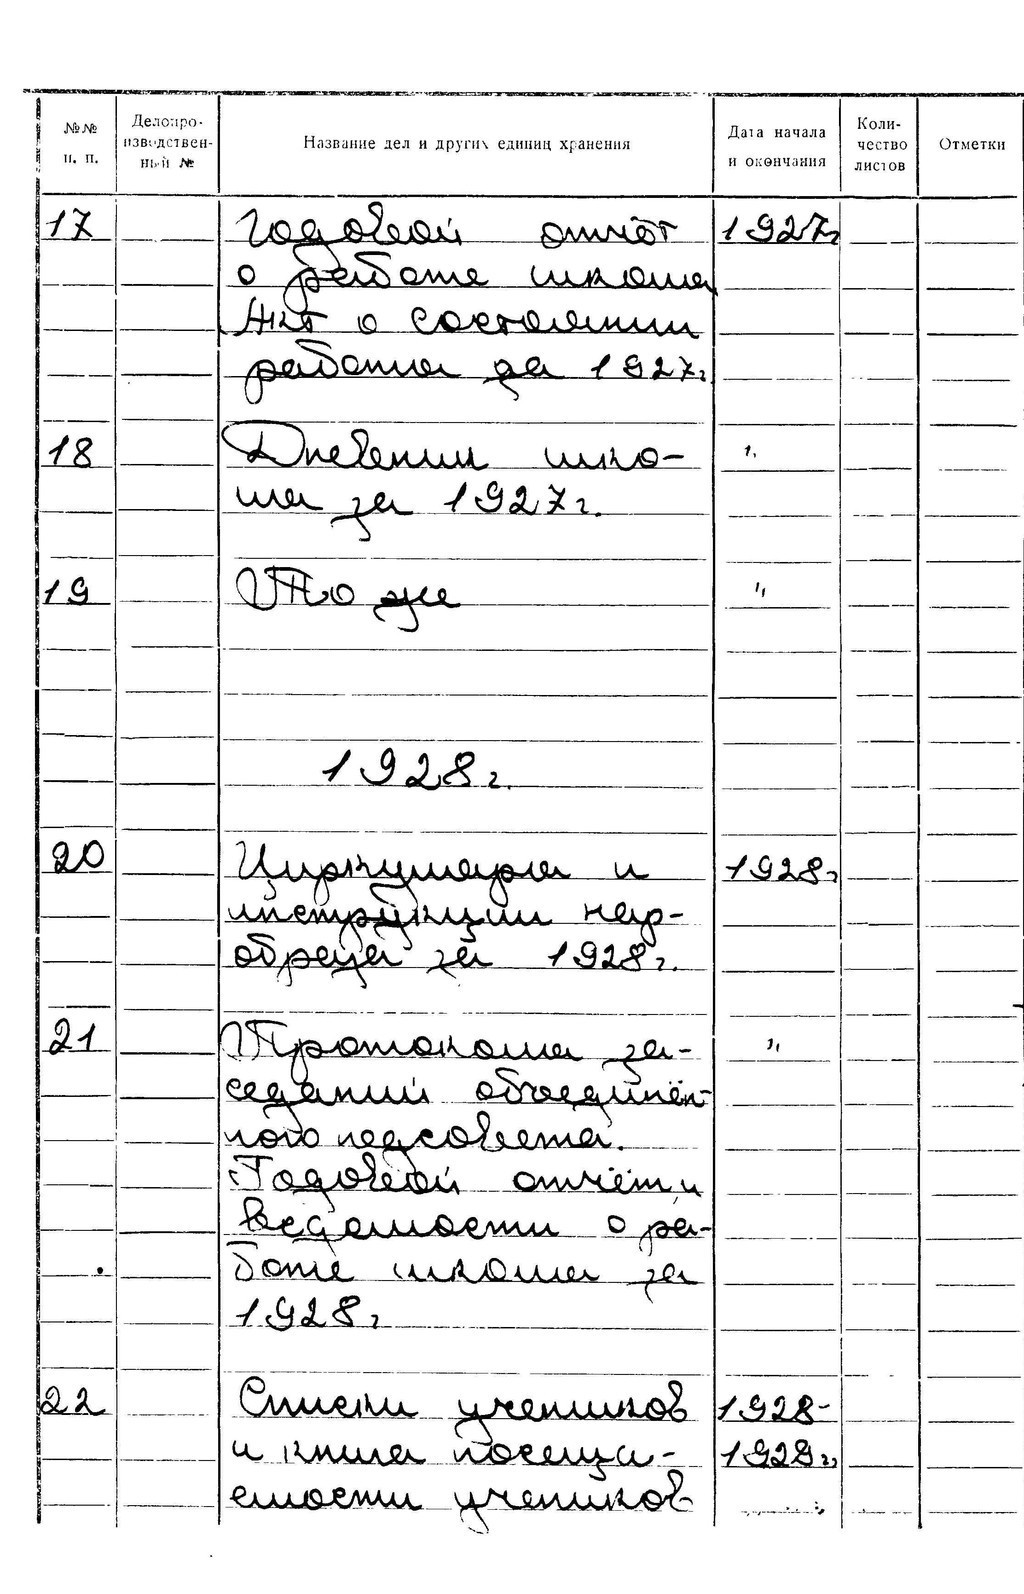 №№ п. п.
Делопроизводствен-
ный №
Название дел и других единиц хранения
Дата начала
и окончания
Коли-
чество
листов
Отметки
17 Годовой отчёт 1927г
о работе школы
Акт о состоянии
работы за 1927г
18 Дневник шко- "
лы за 1927г.
19 То же "
1928г.
20 Циркуляры и 1928г
инструкции нар-
образа за 1928г.
21 Протоколы за- "
седаний объединён-
ного педсовета.
Годовой отчёт и
ведомости о ра-
боте школы за
1928г
22 Списки учеников 1928-
и книга посеща- 1929г.
емости учеников